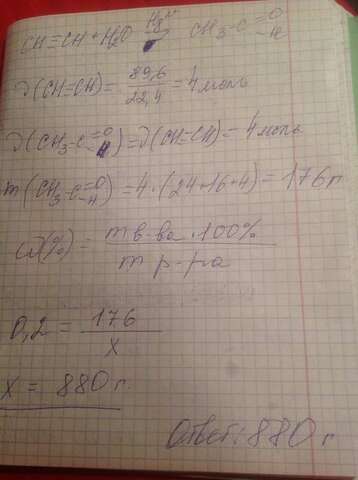 CH≡CH + H₂O →(Hg²⁺) CH₃-C(=O)-H
ν(CH≡CH) = 89,6 / 22,4 = 4 моль
ν(CH₃-C(=O)-H) = ν(CH≡CH) = 4 моль
m(CH₃-C(=O)-H) = 4·(24+16+4) = 176 г
ω(%) = m в-ва · 100% / m р-ра
0,2 = 176 / x
x = 880 г.
Ответ: 880 г